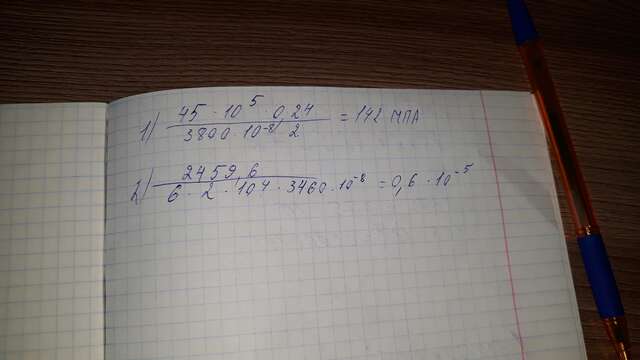 1) 45 · 10⁵ · 0,24 / 3800 · 10⁻⁸ · 2 = 142 МПА
2) 2459,6 / 6 · 2 · 10⁴ · 3460 · 10⁻⁸ = 0,6 · 10⁻⁵